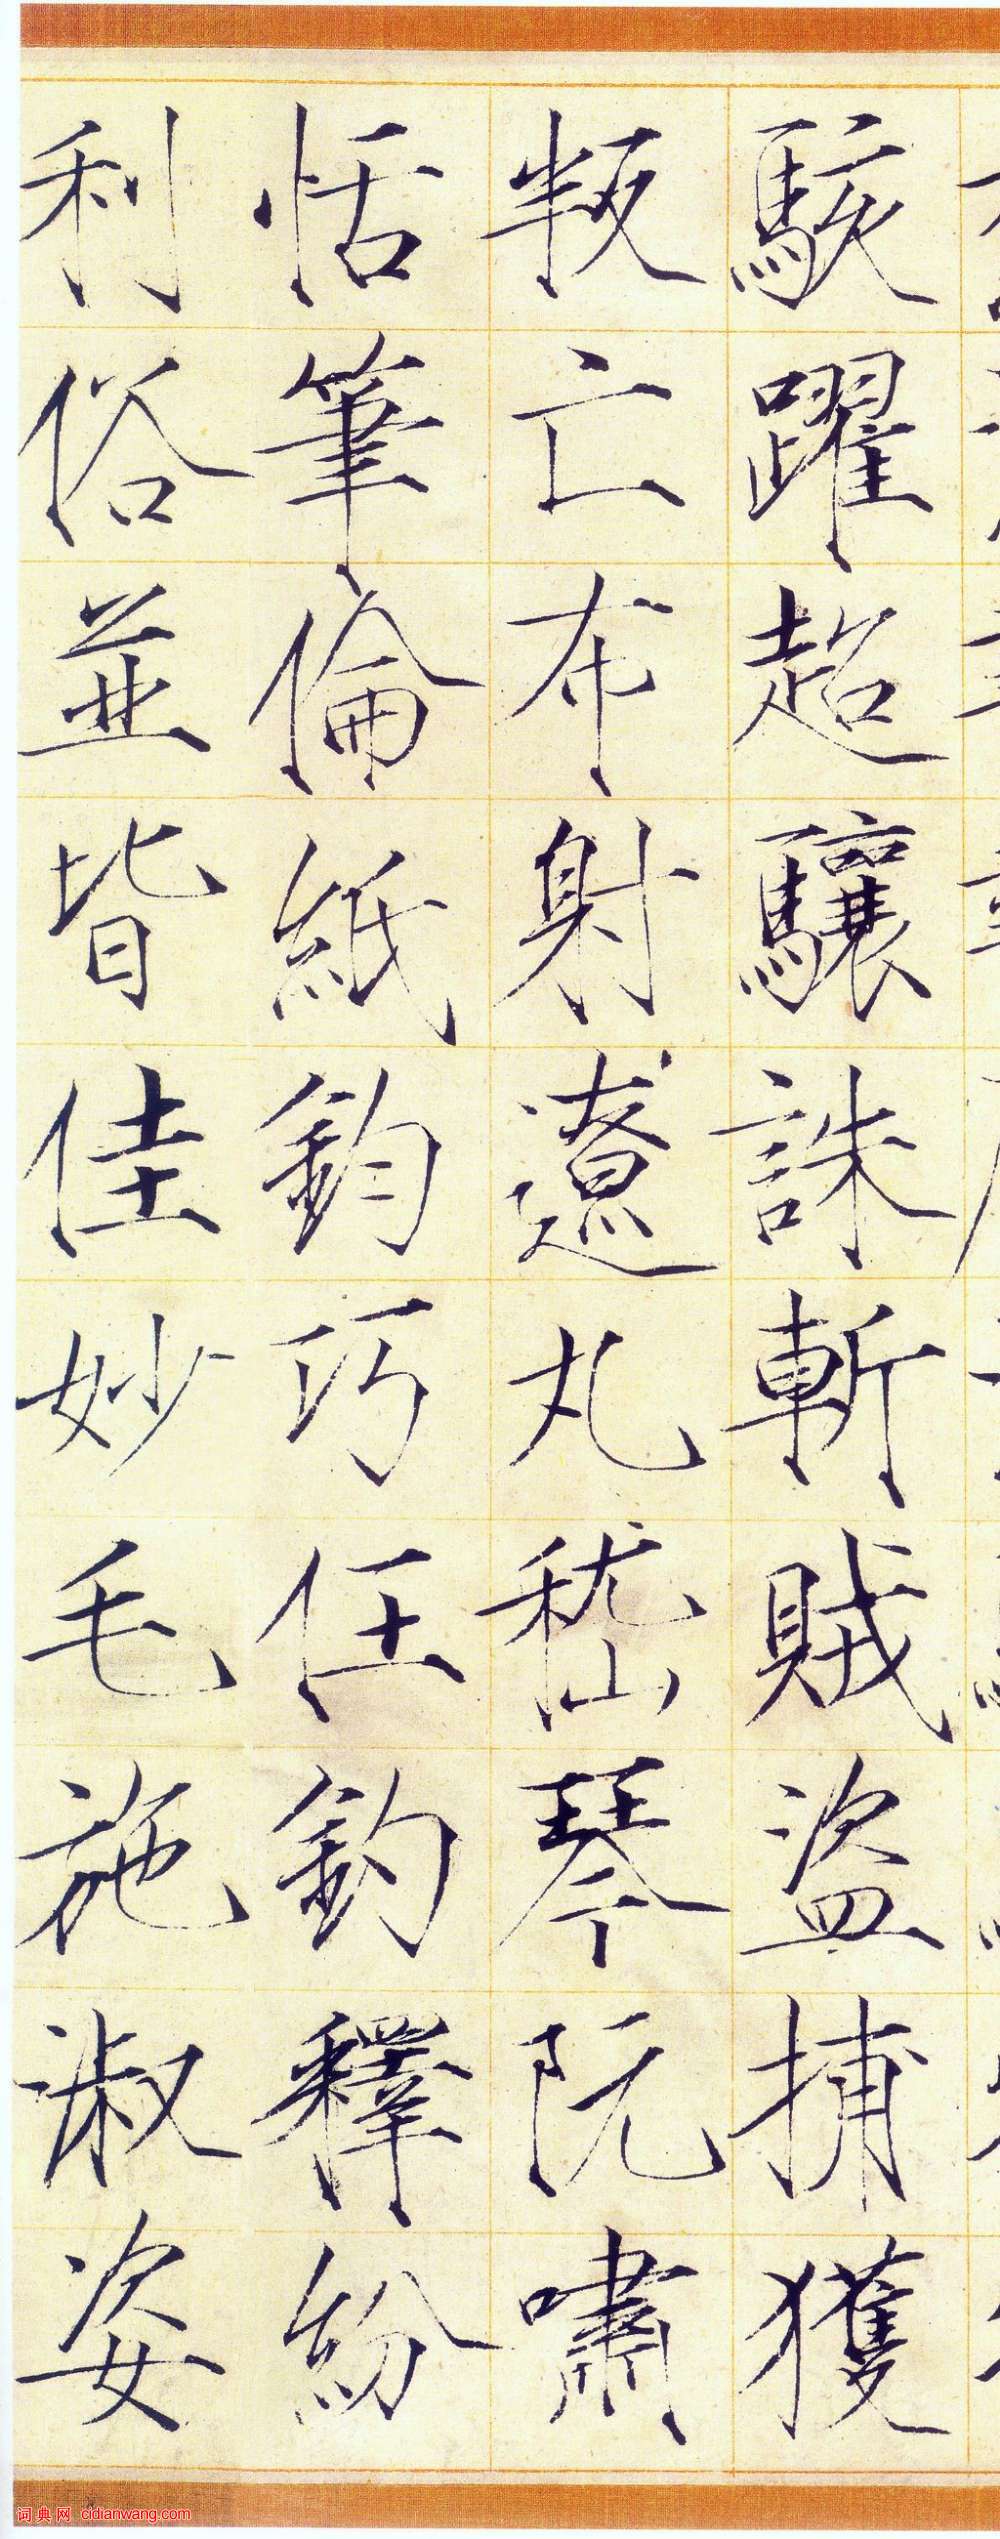 駭躍超驤誅斬賊盜捕獲
叛亡布射遼丸嵇琴阮嘯
恬筆倫紙鈞巧任釣釋紛
利俗並皆佳妙毛施淑姿
词典网 cidianwang.com